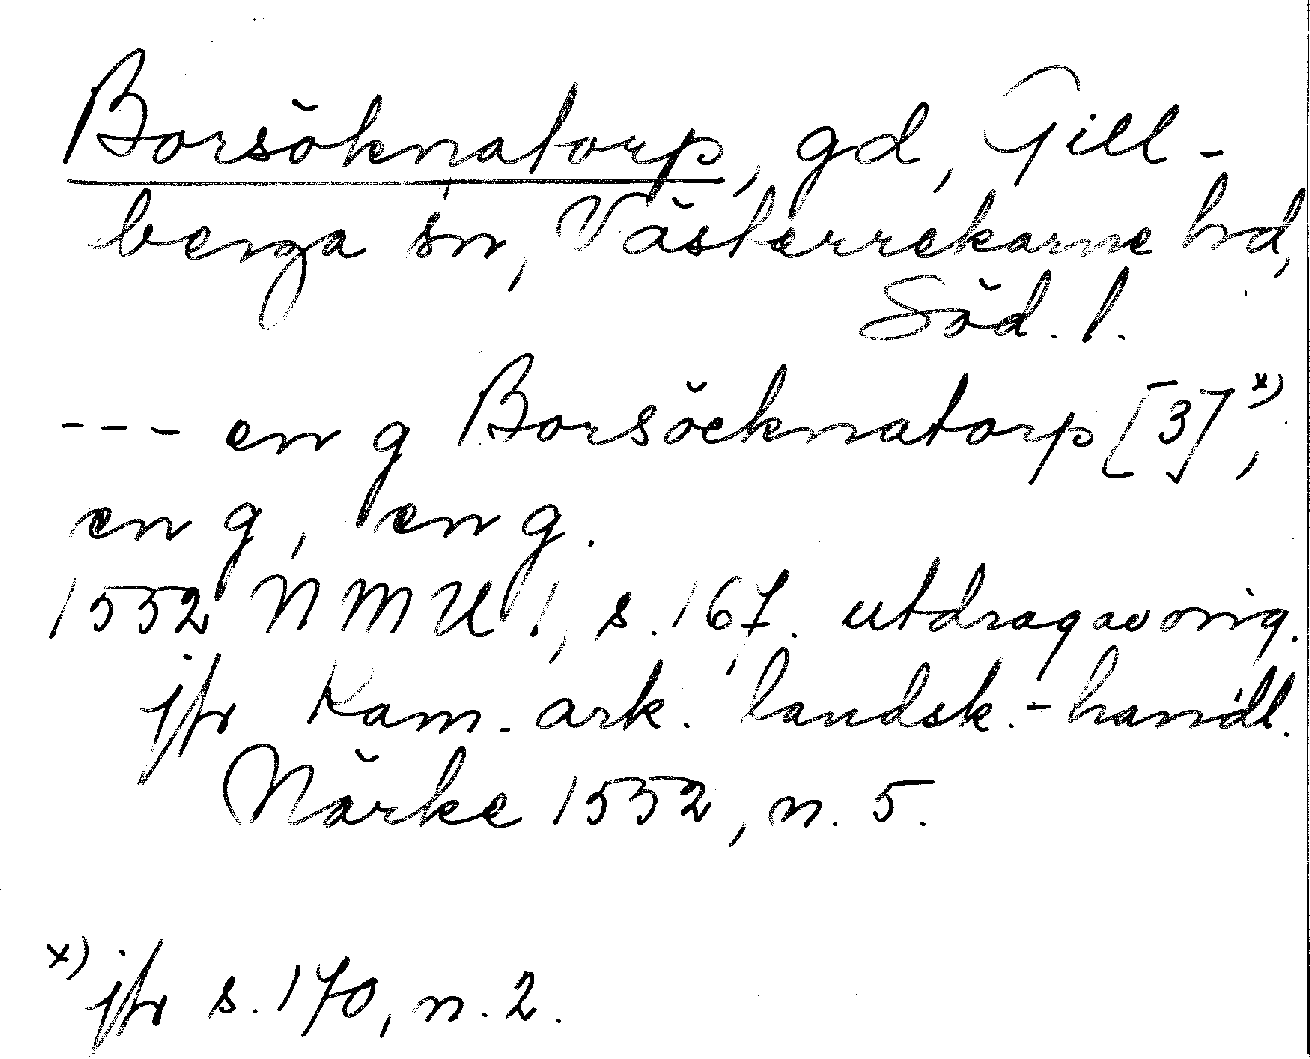 Borsöknatorp, gd, Gill-
berga sn, Västerrekarne hd,
Söd. l.
--- en g Borsöcknatorp [3]x),
en g, en g.
1552 NMU 1, s. 167. utdrag av orig.
jfr Kam. ark. landsk.-handl.
Närke 1552, n. 5.
x) jfr s. 170, n. 2.